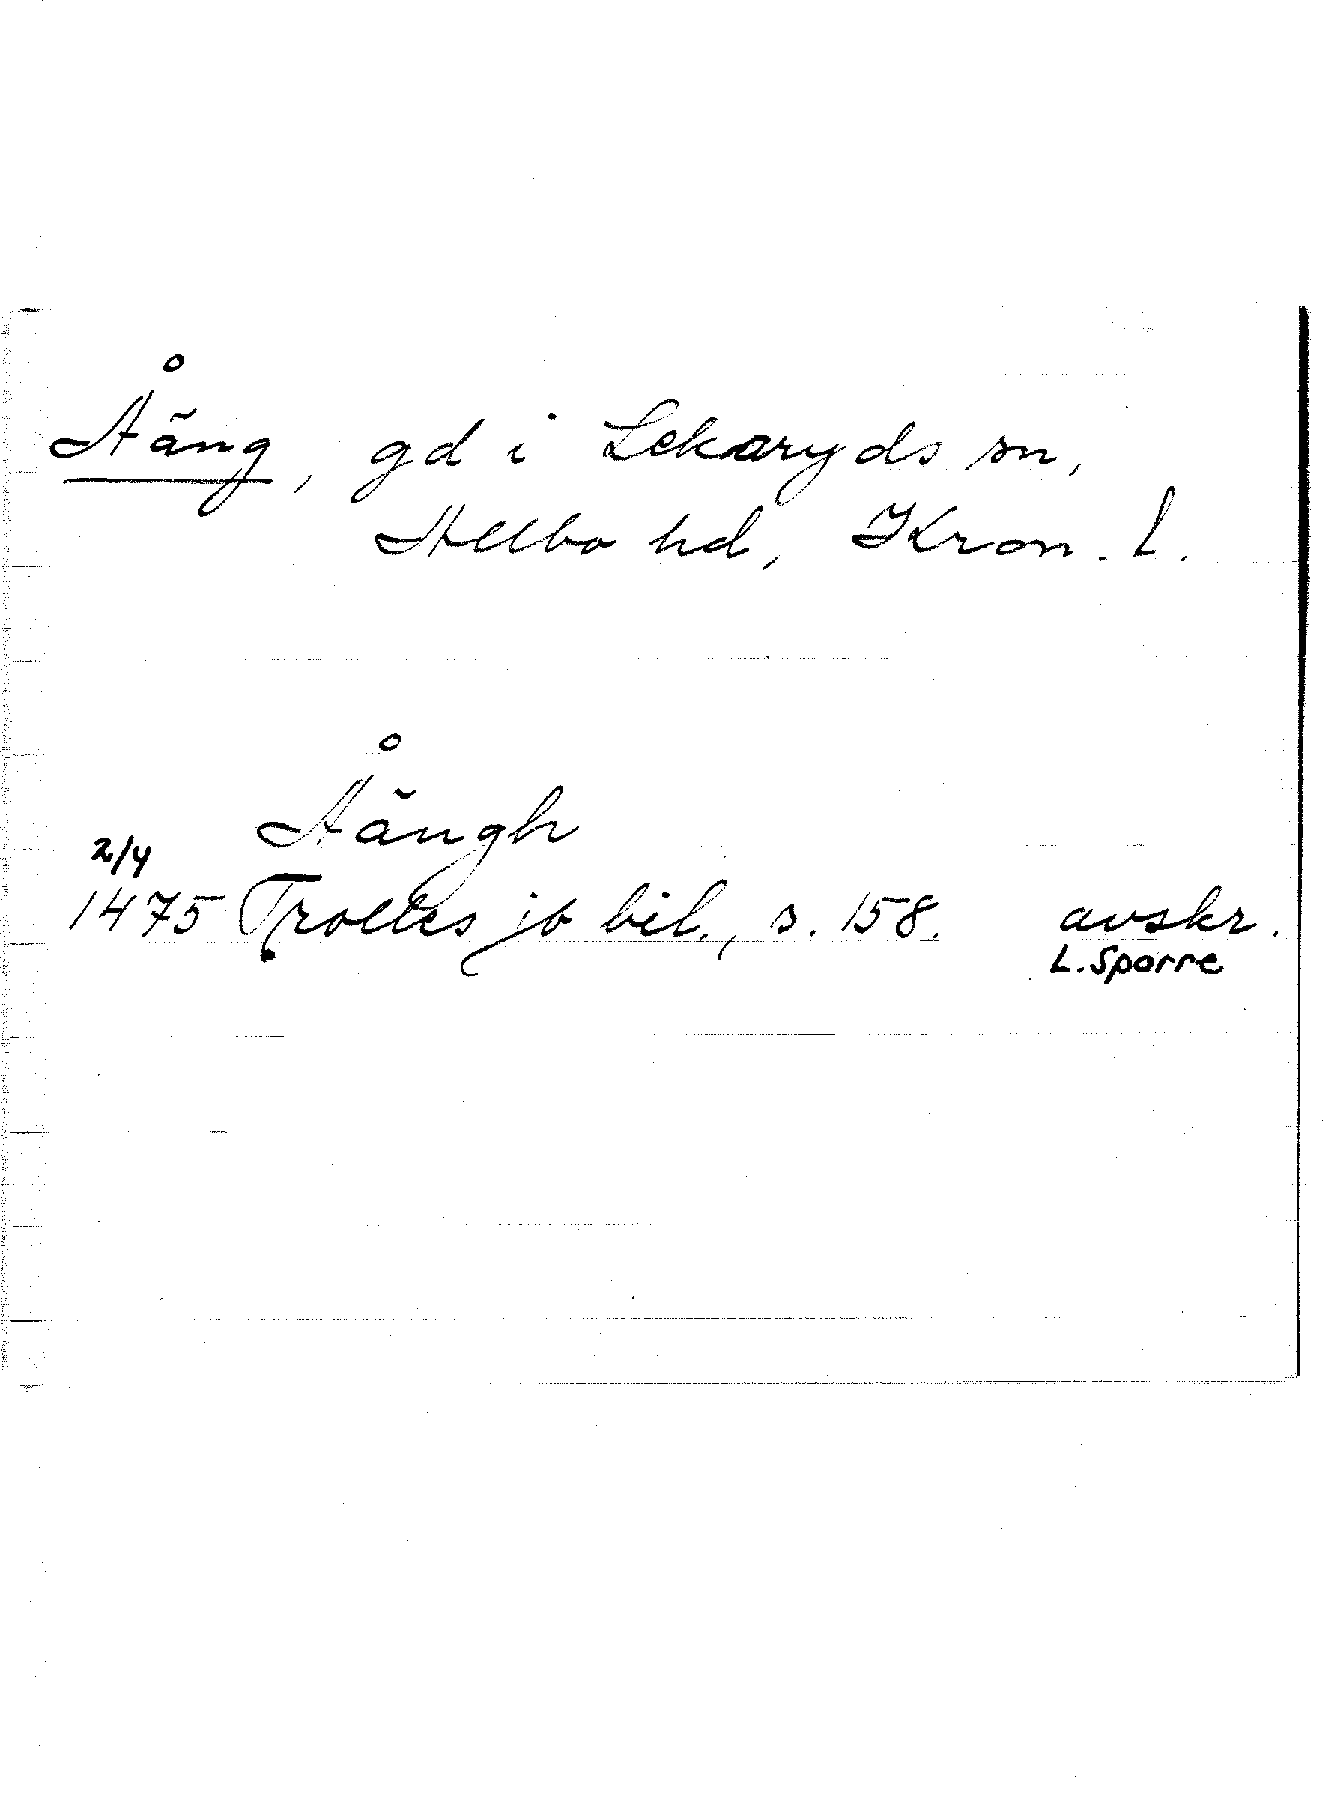 Åäng, gd i Lekaryds sn,
Allbo hd, Kron. l.
Åängh
2/4
1475 Trolles jb bil., s. 158. avskr.
L. Sparre